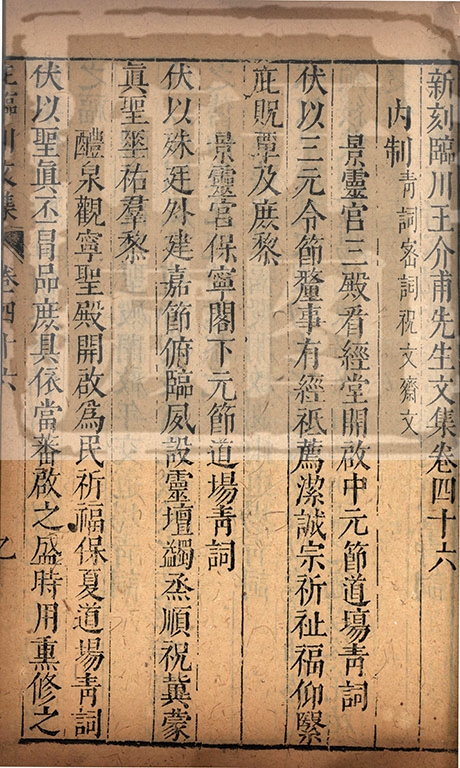 新刻臨川王介甫先生文集卷四十六
內制青詞密詞祝文齋文
景靈宮三殿看經堂開啟中元節道場青詞
伏以三元令節釐事有經祗薦潔誠宗祈祉福仰緊
庇貺覃及庶黎
景靈宮保寧閣下元節道場青詞
伏以殊廷外建嘉節俯臨夙設靈壇蠲烝順祝冀蒙
真聖丕祐羣黎
醴泉觀寧聖殿開啟為民祈福保夏道場青詞
伏以聖真丕冒品庶具依當蕃啟之盛時用熏修之
王臨川文集 卷四十六